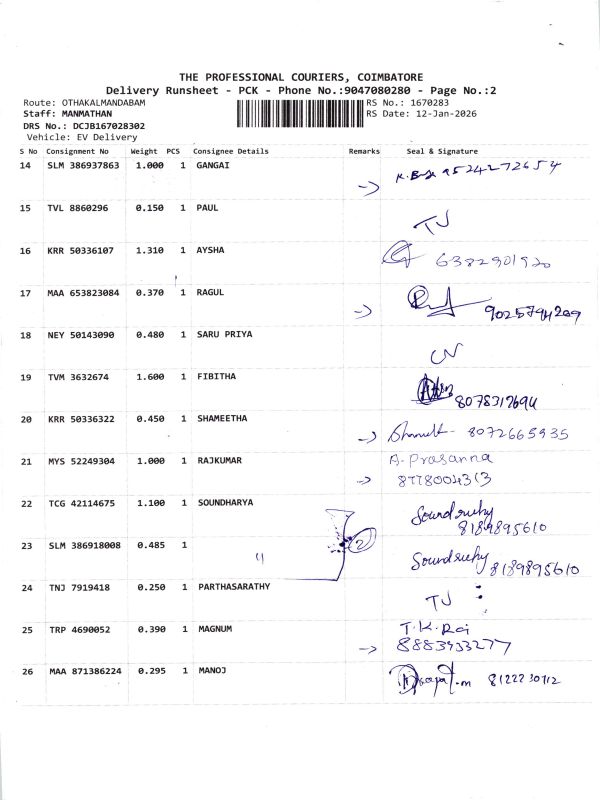 THE PROFESSIONAL COURIERS, COIMBATORE
Delivery Runsheet - PCK - Phone No.:9047080280 - Page No.:2
Route: OTHAKALMANDABAM RS No.: 1670283
Staff: MANMATHAN RS Date: 12-Jan-2026
DRS No.: DCJB167028302
Vehicle: EV Delivery
S No Consignment No Weight PCS Consignee Details Remarks Seal & Signature
14 SLM 386937863 1.000 1 GANGAI 9524272654
15 TVL 8860296 0.150 1 PAUL TJ
16 KRR 50336107 1.310 1 AYSHA 6382901920
17 MAA 653823084 0.370 1 RAGUL 9025794209
18 NEY 50143090 0.480 1 SARU PRIYA
19 TVM 3632674 1.600 1 FIBITHA 8078317694
20 KRR 50336322 0.450 1 SHAMEETHA 8072665935
21 MYS 52249304 1.000 1 RAJKUMAR A. Prasanna
8778004313
22 TCG 42114675 1.100 1 SOUNDHARYA
8189895610
23 SLM 386918008 0.485 1 2
8189895610
24 TNJ 7919418 0.250 1 PARTHASARATHY TJ
25 TRP 4690052 0.390 1 MAGNUM T.K.Raj
8883933277
26 MAA 871386224 0.295 1 MANOJ